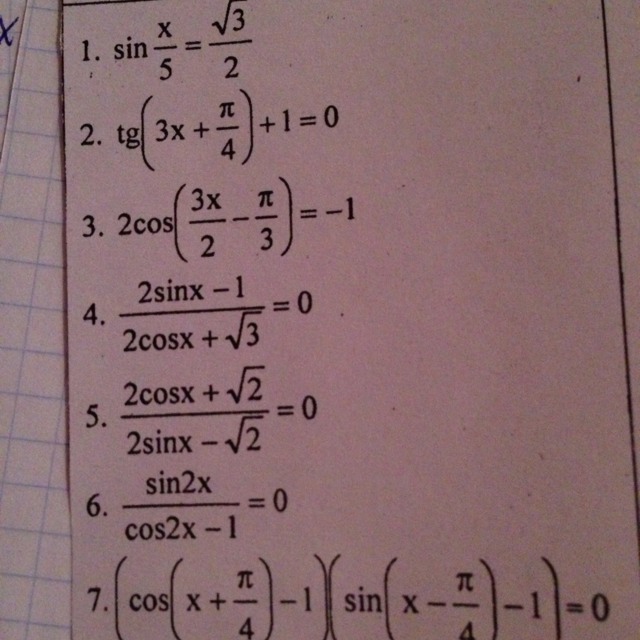 1. sin x/5 = √3/2
2. tg(3x + π/4) + 1 = 0
3. 2cos(3x/2 − π/3) = −1
4. (2sinx − 1)/(2cosx + √3) = 0
5. (2cosx + √2)/(2sinx − √2) = 0
6. sin2x/(cos2x − 1) = 0
7. (cos(x + π/4) − 1)(sin(x − π/4) − 1) = 0